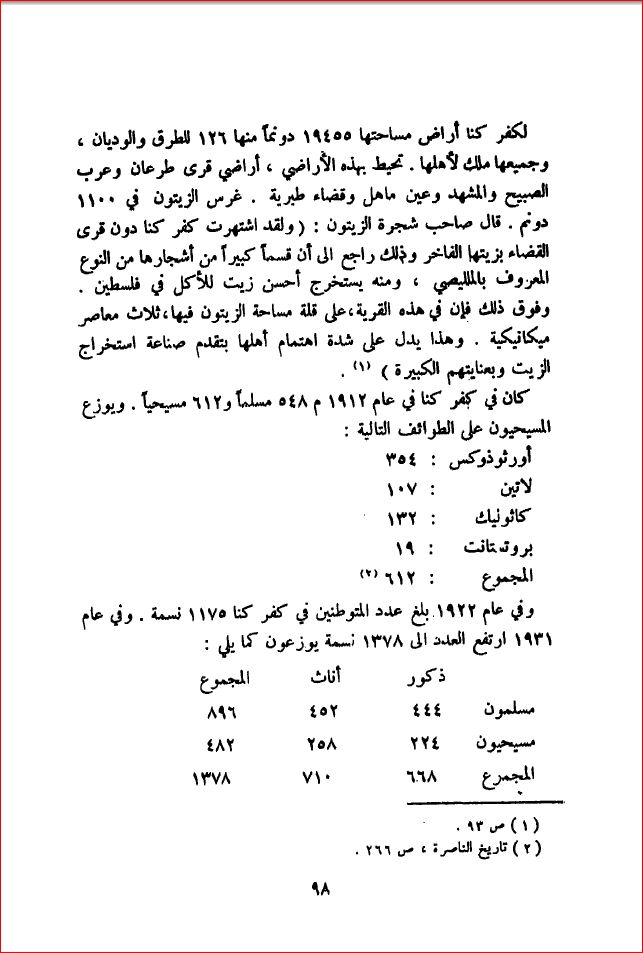 لكفر كنا أراض مساحتها ١٩٤٥٥ دونماً منها ١٢٦ للطرق والوديان ،
وجميعها ملك لأهلها . تحيط بهذه الأراضي ، أراضي قرى طرعان وعرب
الصبيح والمشهد وعين ماهل وقضاء طبرية . غرس الزيتون في ١١٠٠
دونم . قال صاحب شجرة الزيتون : ( ولقد اشتهرت كفر كنا دون قرى
القضاء بزيتها الفاخر وذلك راجع الى أن قسماً كبيراً من أشجارها من النوع
المعروف بالمليصي ، ومنه يستخرج أحسن زيت للأكل في فلسطين .
وفوق ذلك فإن في هذه القرية،على قلة مساحة الزيتون فيها،ثلاث معاصر
ميكانيكية . وهذا يدل على شدة اهتمام أهلها بتقدم صناعة استخراج
الزيت وبعنايتهم الكبيرة ) (١) .
كان في كفر كنا في عام ١٩١٢ م ٥٤٨ مسلماً و٦١٢ مسيحياً . ويوزع
المسيحيون على الطوائف التالية :
أورثوذوكس : ٣٥٤
لاتين : ١٠٧
كاثوليك : ١٣٢
بروتستانت : ١٩
المجموع : ٦١٢ (٢)
وفي عام ١٩٢٢ بلغ عدد المتوطنين في كفر كنا ١١٧٥ نسمة . وفي عام
١٩٣١ ارتفع العدد الى ١٣٧٨ نسمة يوزعون كما يلي :
ذكور أناث المجموع
مسلمون ٤٤٤ ٤٥٢ ٨٩٦
مسيحيون ٢٢٤ ٢٥٨ ٤٨٢
المجموع ٦٦٨ ٧١٠ ١٣٧٨
( ١ ) ص ٩٣ .
( ٢ ) تاريخ الناصرة ، ص ٢٦٦ .
٩٨